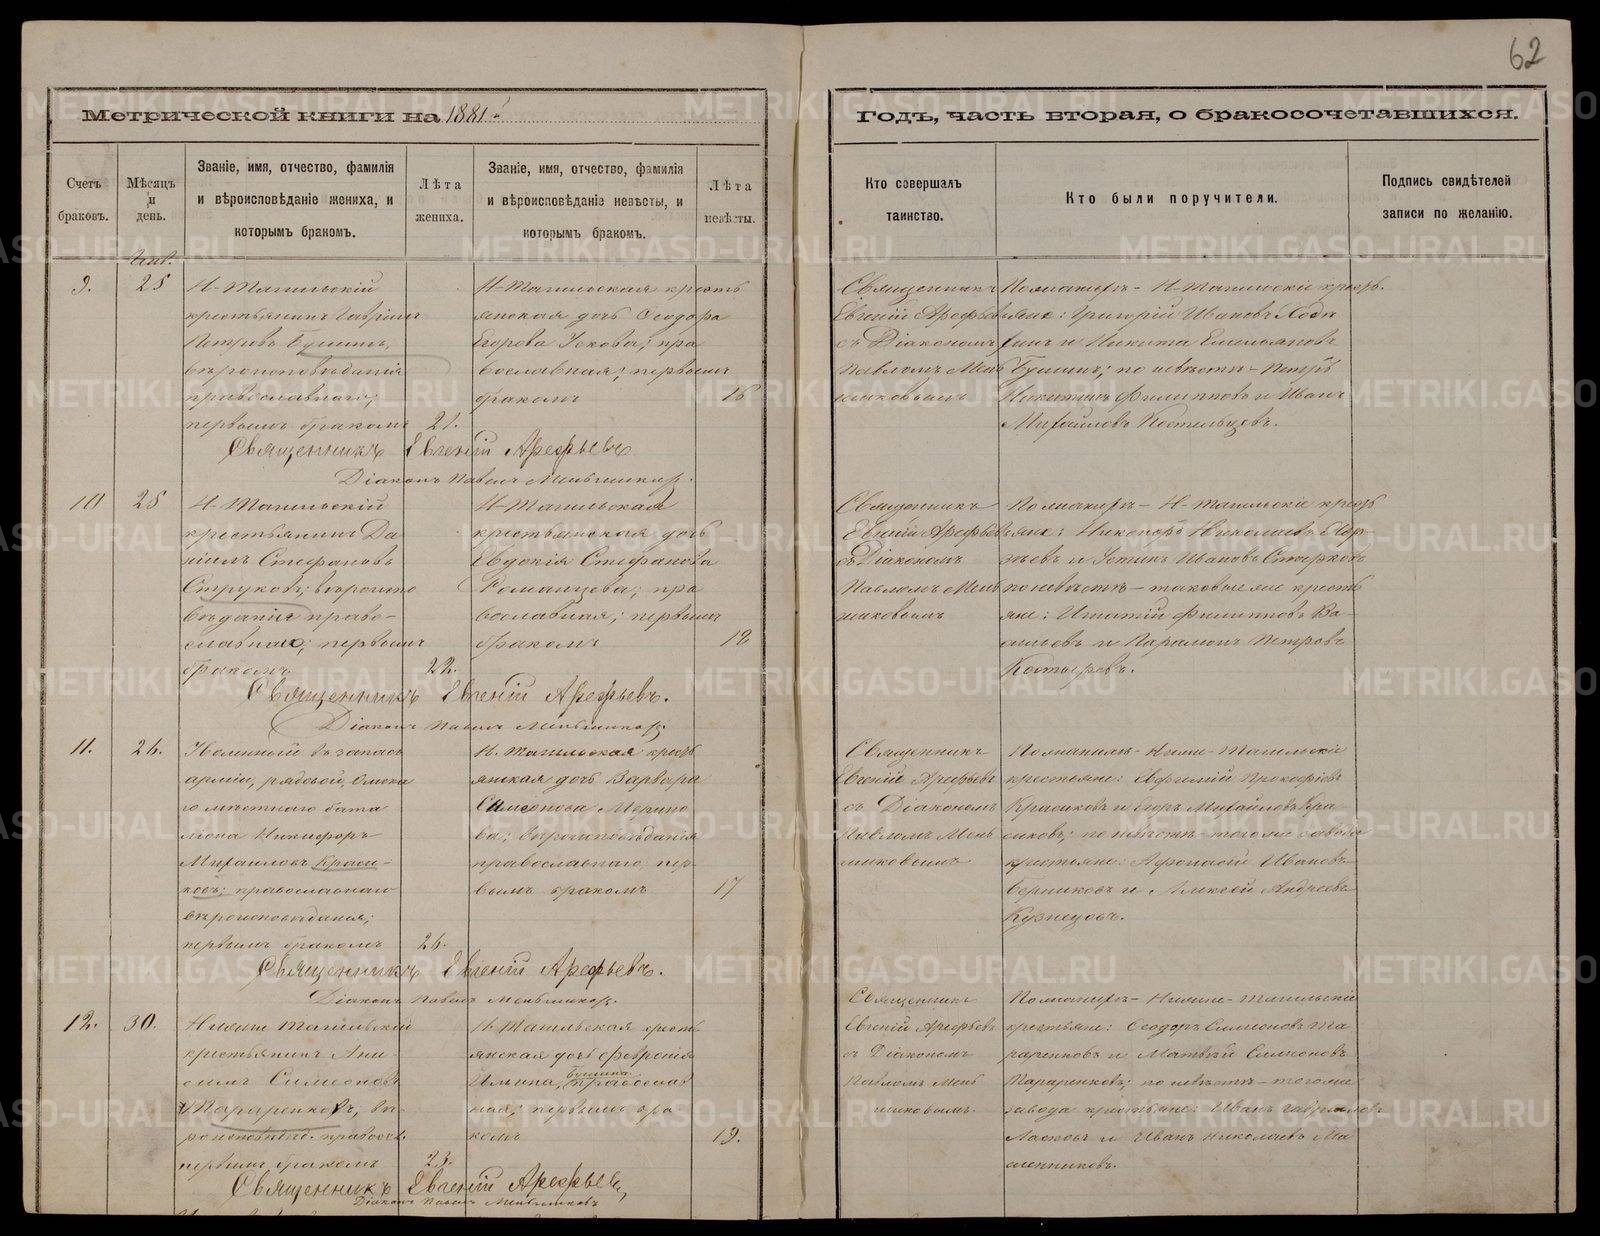 62
Метрической книги на 1881 г.
Годъ, часть вторая, о бракосочетавшихся.
Счетъ браковъ.
Мѣсяцъ и день.
Званіе, имя, отчество, фамилія
и вѣроисповѣданіе жениха, и
которымъ бракомъ.
Лѣта
жениха.
Званіе, имя, отчество, фамилія
и вѣроисповѣданіе невѣсты, и
которымъ бракомъ.
Лѣта
невѣсты.
Кто совершалъ
таинство.
Кто были поручители.
Подпись свидѣтелей
записи по желанію.
9.
25
Н-Тагильскій
крестьянинъ Гавріилъ
Петровъ Бушинъ,
вѣроисповѣданія
православнаго;
первымъ бракомъ
21.
Н-Тагильская кресть
янская дочь Ѳеодора
Егорова Ускова; пра
вославная; первымъ
бракомъ
16
Священникъ
Евгеній Арефьевъ
съ Діакономъ
Павломъ Мень
шиковымъ
По женихѣ - Н-Тагильскіе кресть
яне: Григорій Ивановъ
и Никита Емельяновъ
Бушинъ; по невѣстѣ - Петръ
Никитинъ Филипповъ и Иванъ
Михайловъ Костельцевъ.
Священникъ Евгеній Арефьевъ
Діаконъ Павелъ Меньшиковъ.
10
25
Н-Тагильскій
крестьянинъ Да
ніилъ Стефановъ
Струковъ; вѣроиспо
вѣданія право-
славнаго; первымъ
бракомъ
22.
Н-Тагильская
крестьянская дочь
Евдокія Стефанова
Романцова; пра
вославная; первымъ
бракомъ
18
Священникъ
Евгеній Арефьевъ
съ Діакономъ
Павломъ Мень
шиковымъ
По женихѣ - Н-Тагильскіе кресть
яне: Никифоръ Николаевъ
и Устинъ Ивановъ Старковъ
по невѣстѣ - таковые же кресть
яне: Игнатій Филипповъ Ва
сильевъ и Парамонъ Петровъ
Костыревъ.
Священникъ Евгеній Арефьевъ.
Діаконъ Павелъ Меньшиковъ.
11.
26.
Уволенный въ запасъ
арміи, рядовой, Омска
го мѣстнаго бата
ліона Никифоръ
Михаиловъ Краси-
ковъ; православнаго
вѣроисповѣданія;
первымъ бракомъ
26.
Н. Тагильская кресть
янская дочь Варвара
Симеонова Мерино
ва; вѣроисповѣданія
православнаго пер
вымъ бракомъ
17
Священникъ
Евгеній Арефьевъ
съ Діакономъ
Павломъ Мень
шиковымъ
По женихѣ - Нижне-Тагильскіе
крестьяне: Евфимій Прокофьевъ
Красиковъ и Егоръ Михайловъ Кра
сиковъ; по невѣстѣ - того же завода
крестьяне: Афонасій Ивановъ
Берниковъ и Алексѣй Андреевъ
Кузнецовъ.
Священникъ Евгеній Арефьевъ.
Діаконъ Павелъ Меньшиковъ.
12.
30.
Нижне Тагильскій
крестьянинъ Ани-
симъ Симеоновъ
Тараренковъ, вѣ-
роисповѣд. правосл.
первымъ бракомъ
23.
Н-Тагильская кресть
янская дочь Февронія
Ильина, Бушина православ
ная; первымъ бра-
комъ
19.
Священникъ
Евгеній Арефьевъ
съ Діакономъ
Павломъ Мень
шиковымъ.
По женихѣ - Нижне-Тагильскіе
крестьяне: Ѳеодоръ Симеоновъ Та
раренковъ и Матвѣй Симеоновъ
Тараренковъ; по невѣстѣ - того же
завода крестьяне: Иванъ Гавриловъ
и Иванъ Николаевъ Ма
сленниковъ.
Священникъ Евгеній Арефьевъ,
Діаконъ Павелъ Меньшиковъ
METRIKI.GASO-URAL.RU